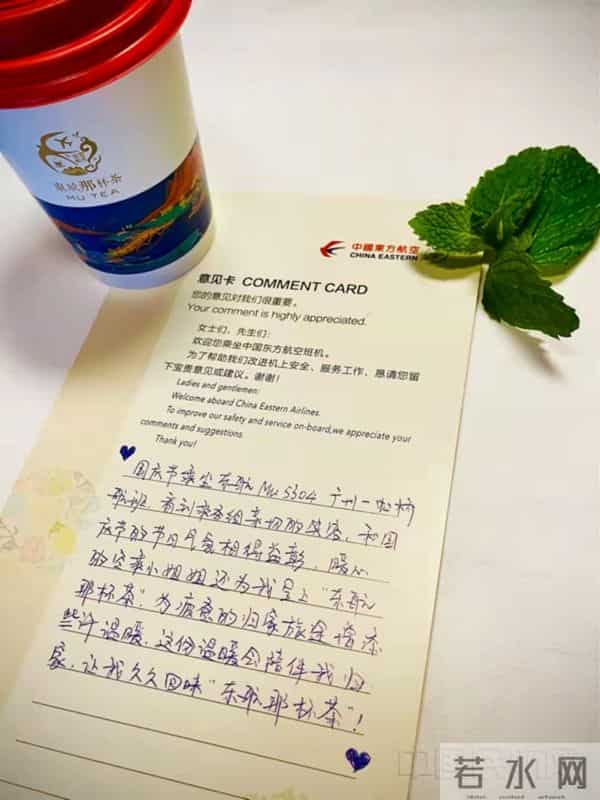 東航那杯茶
MU TEA
中國東方航空
CHINA EASTERN
意见卡 COMMENT CARD
您的意见对我们很重要。
Your comment is highly appreciated.
女士们、先生们:
欢迎您乘坐中国东方航空班机。
为了帮助我们改进机上安全、服务工作，恳请您留
下宝贵意见或建议。谢谢!
Ladies and gentlemen:
Welcome aboard China Eastern Airlines.
To improve our safety and service on-board,we appreciate your
comments and suggestions.
Thank you!
国庆节乘坐东航MU5304 广州一
航班，看到乘务组亲切的笑容，和国
庆节的节日气氛相得益彰，暖心
的空乘小姐姐还为我呈上“东航
那杯茶”，为疲惫的归家旅途增添
些许温暖，这份温暖会陪伴我归
家，让我久久回味“东航那杯茶”！
若水网